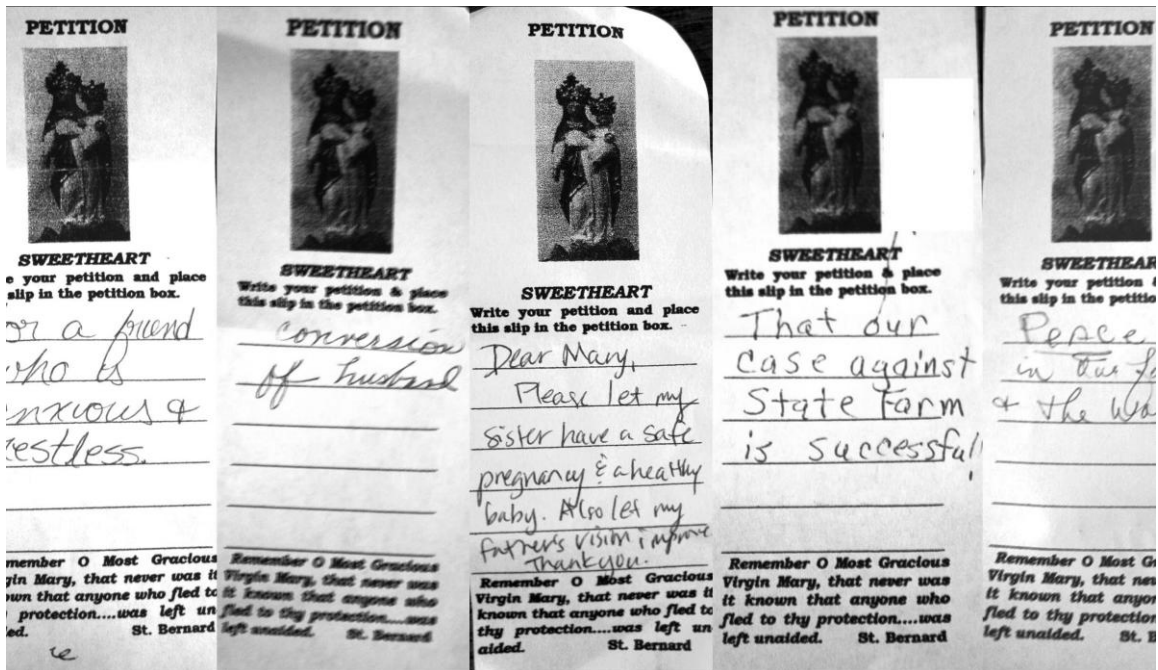 PETITION
SWEETHEART
e your petition and place
slip in the petition box.
or a friend
who is
anxious &
restless.
member O Most Gracious
gin Mary, that never was it
own that anyone who fled to
protection....was left un
ed. St. Bernard
PETITION
SWEETHEART
Write your petition & place
this slip in the petition box.
conversion
of husband
Remember O Most Gracious
Virgin Mary, that never was
it known that anyone who
fled to thy protection....was
left unaided. St. Bernard
PETITION
SWEETHEART
Write your petition and place
this slip in the petition box.
Dear Mary,
Please let my
sister have a safe
pregnancy & a healthy
baby. Also let my
father's vision improve
Thank you.
Remember O Most Gracious
Virgin Mary, that never was it
known that anyone who fled to
thy protection....was left un
aided. St. Bernard
PETITION
SWEETHEART
Write your petition & place
this slip in the petition box.
That our
case against
State Farm
is successful!
Remember O Most Gracious
Virgin Mary, that never was
it known that anyone who
fled to thy protection....was
left unaided. St. Bernard
PETITION
SWEETHEAR
Write your petition &
this slip in the petitio
Peace
in our fa
& the Wo
Remember O Most Gr
Virgin Mary, that nev
it known that anyon
fled to thy protection
left unaided. St. B